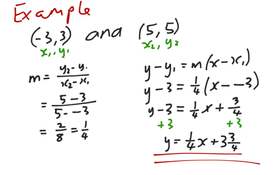 Example
(-3,3) and (5,5)
x₁, y₁ x₂, y₂
m = y₂-y₁ / x₂-x₁
= 5-3 / 5--3
= 2/8 = 1/4
y-y₁ = m(x-x₁)
y-3 = 1/4(x--3)
y-3 = 1/4x + 3/4
+3 +3
y = 1/4x + 3 3/4